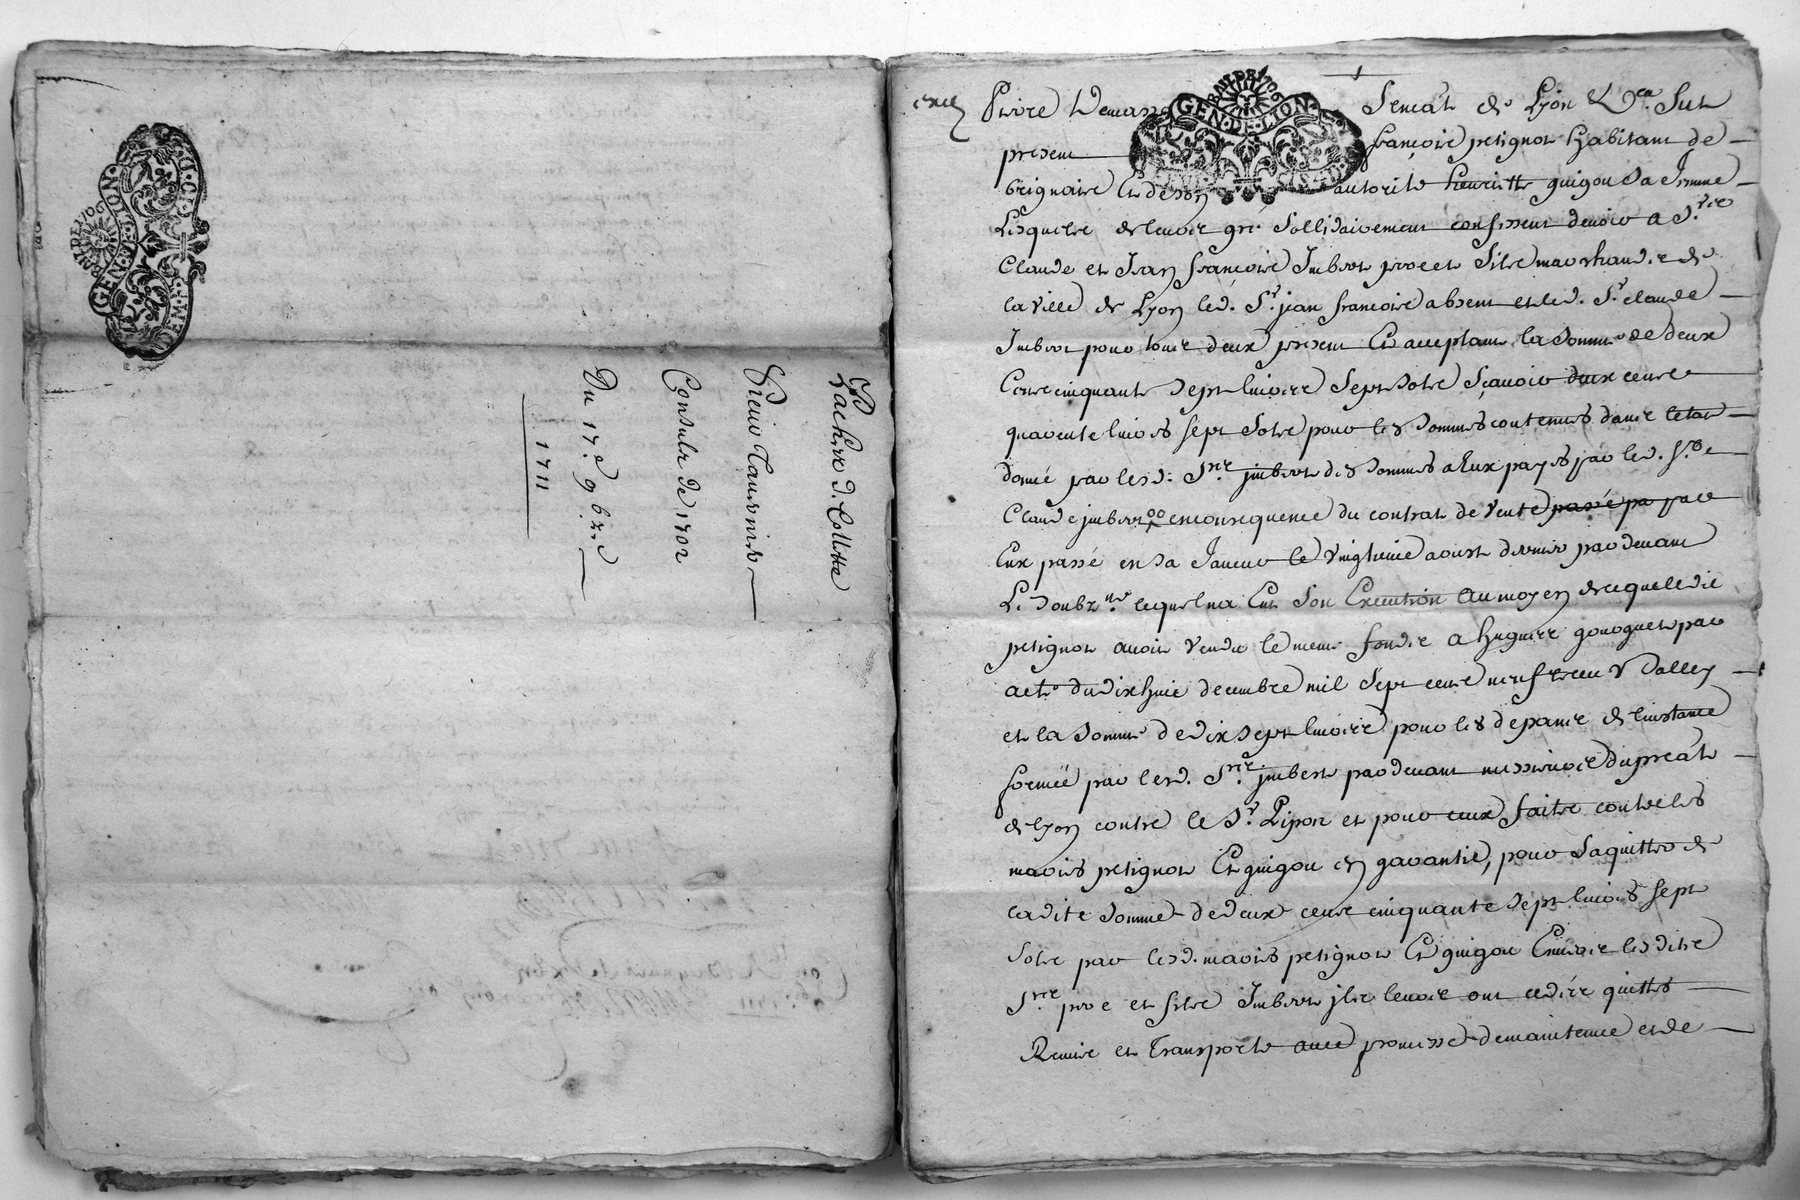 GEN·DE·LION
Lachere d. Collette
Sieur Tauernier
Consuls de 1702
Du 17.e 9bre
1711
GEN·DE·LION·
Senéat de Lyon
present françois petignot habitant de
brignaire Et de son autorité henriette guigou Sa femme
Lesquels de leur gré Sollidairement confessent devoir a Srs
Claude et Jean françois Imbert pere et fils marchands de
la Ville de Lyon led. Sr jean francois absent et led. Sr claude
Imbert pour tous deux present Et acceptant la somme de deux
Cens cinquante sept livres sept sols sçavoir deux cens
quarente livres sept sols pour les sommes contenues dans letat
donné par lesd. Srs imbert des sommes a Eux payes par led. Sr
Claude imbert en consequence du contrat de Vente passé pa par
Eux passé en sa faveur le vingtieme aoust dernier pardevant
Le soubzné lequel na Eut son Execution au moyen de ce que led
petignot avoit vendu le meme fonds a hugues gouoguet par
acte du dix huit decembre mil sept cens neuf receu Dalley
et la somme de dix sept livres pour les depans de linstance
formée par lesd. Srs imbert pardevant messieurs du
de lyon contre le Sr Pipon et pour ceux faits contre les
maries petignot Et guigou en garantie, pour Saquitter de
ladite somme de deux cens cinquante sept livres sept
sols par lesd. maries petignot Et guigou Envers lesdits
Srs pere et fils Imbert ils leurs ont cedés quittes
Remis et transporte avec promesse de maintenue et de